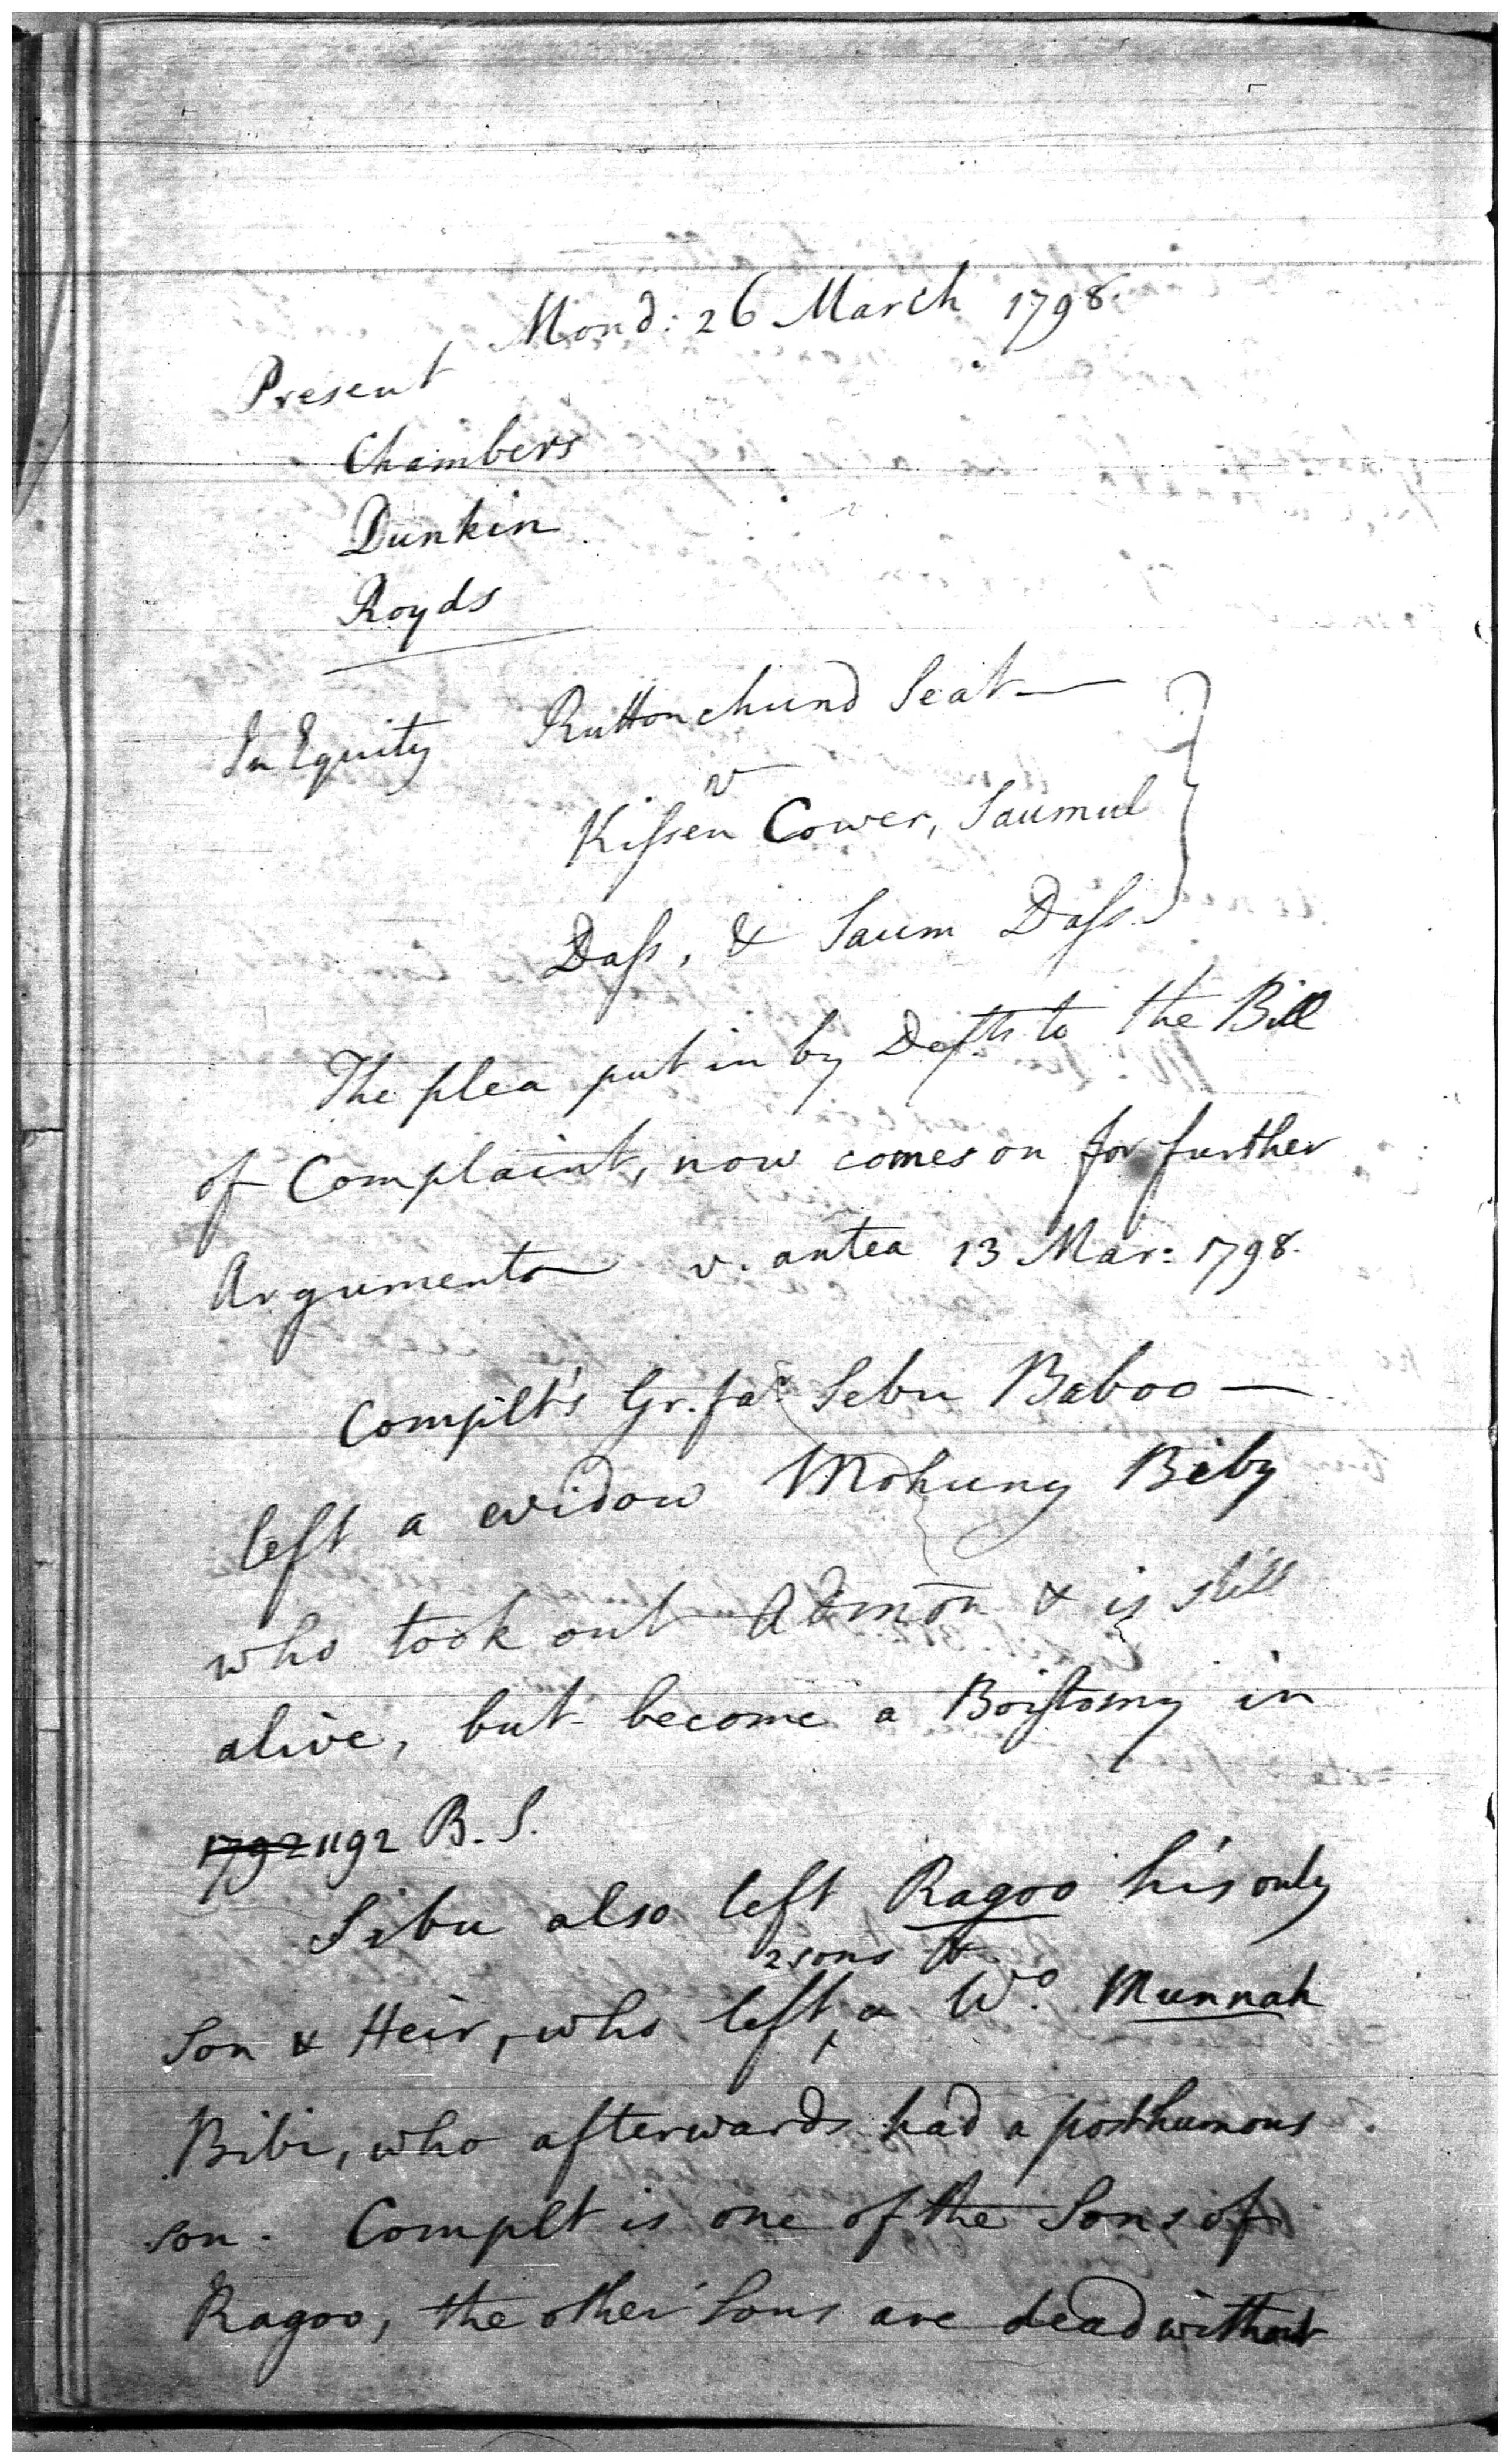 Mond: 26 March 1798.
Present
Chambers
Dunkin
Royds
In Equity Ruttonchund Seat —
v
Kissen Cower, Saumul
Dass, & Saum Dass.
The plea put in by Defts to the Bill
of Complaint, now comes on for further
Argument v. antea 13 Mar: 1798.
Complt's Gr. far. Sebu Baboo —
left a widow Mohuny Beby
who took out Admon & is still
alive, but become a Boistomy in
1792 1192 B. S.
Sibu also left Ragoo his only
2 sons &
Son & Heir, who left a Wo. Munnah
Bibi, who afterwards had a posthumous
son. Complt is one of the Sons of
Ragoo, the other Sons are dead without